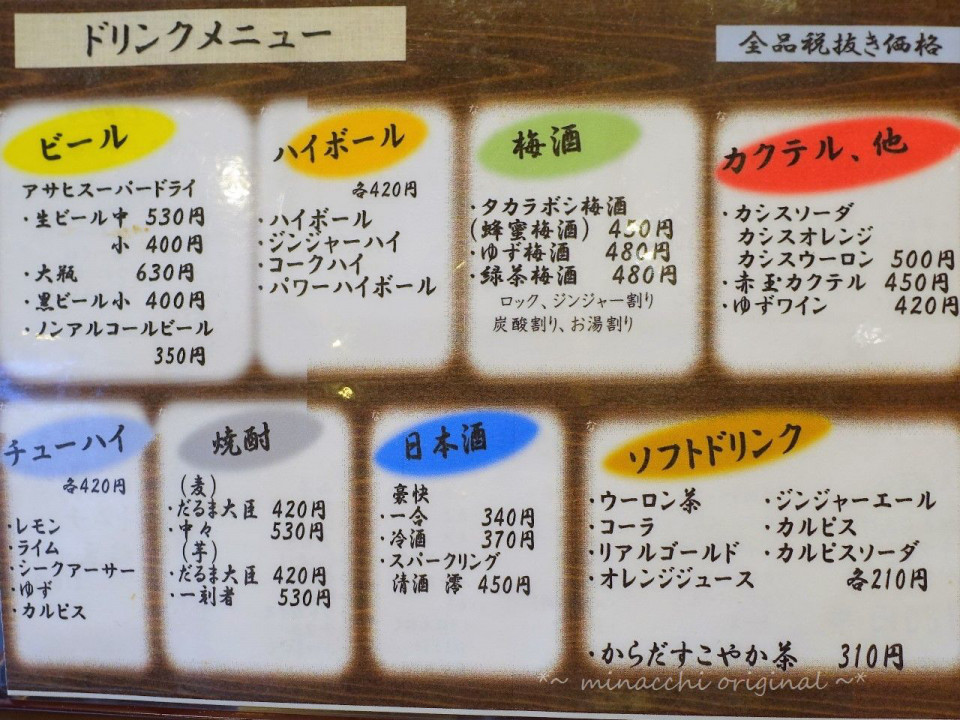 ドリンクメニュー
全品税抜き価格
ビール
アサヒスーパードライ
・生ビール中 530円
小 400円
・大瓶 630円
・黒ビール小 400円
・ノンアルコールビール
350円
ハイボール
各420円
・ハイボール
・ジンジャーハイ
・コークハイ
・パワーハイボール
梅酒
・タカラボシ梅酒
(蜂蜜梅酒) 450円
・ゆず梅酒 480円
・緑茶梅酒 480円
ロック、ジンジャー割り
炭酸割り、お湯割り
カクテル、他
・カシスソーダ
カシスオレンジ
カシスウーロン 500円
・赤玉カクテル 450円
・ゆずワイン 420円
チューハイ
各420円
・レモン
・ライム
・シークアーサー
・ゆず
・カルピス
焼酎
(麦)
・だるま大臣 420円
・中々 530円
(芋)
・だるま大臣 420円
・一刻者 530円
日本酒
豪快
・一合 340円
・冷酒 370円
・スパークリング
清酒 澪 450円
ソフトドリンク
・ウーロン茶
・コーラ
・リアルゴールド
・オレンジジュース
・ジンジャーエール
・カルピス
・カルピスソーダ
各210円
・からだすこやか茶 310円
*~ minacchi original ~*